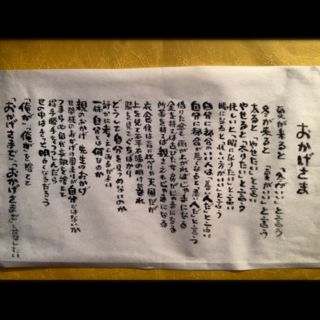 おかげさま
夏が来ると「冬がいい」と言う
冬が来ると「夏がいい」と言う
太ると「やせたい」と言う
やせると「太りたい」と言う
忙しいと「暇になりたい」と言う
暇になると「忙しい方がいい」と言う
自分に都合のいい人は「善い人だ」と言い
自分に都合が悪くなると「悪い人だ」と言う
借りた傘も雨が上がれば邪魔になる
金を持てば古びた女房が邪魔になる
所帯を持てば親さえも邪魔になる
衣食住は昔に比べりゃ天国だが
上を見て不平不満の明け暮れ
隣を見て愚痴ばかり
どうして自分を見つめないのか
静かに考えてみるがよい
一体自分とは何なのか
親のおかげ 先生のおかげ
世間様のおかげの固まりが自分ではないか
つまらぬ自我妄執を捨てて
得手勝手を慎んだら
世の中はきっと明るくなるだろう
「俺が」「俺が」を捨てて
「おかげさまで」「おかげさまで」と暮らしたい